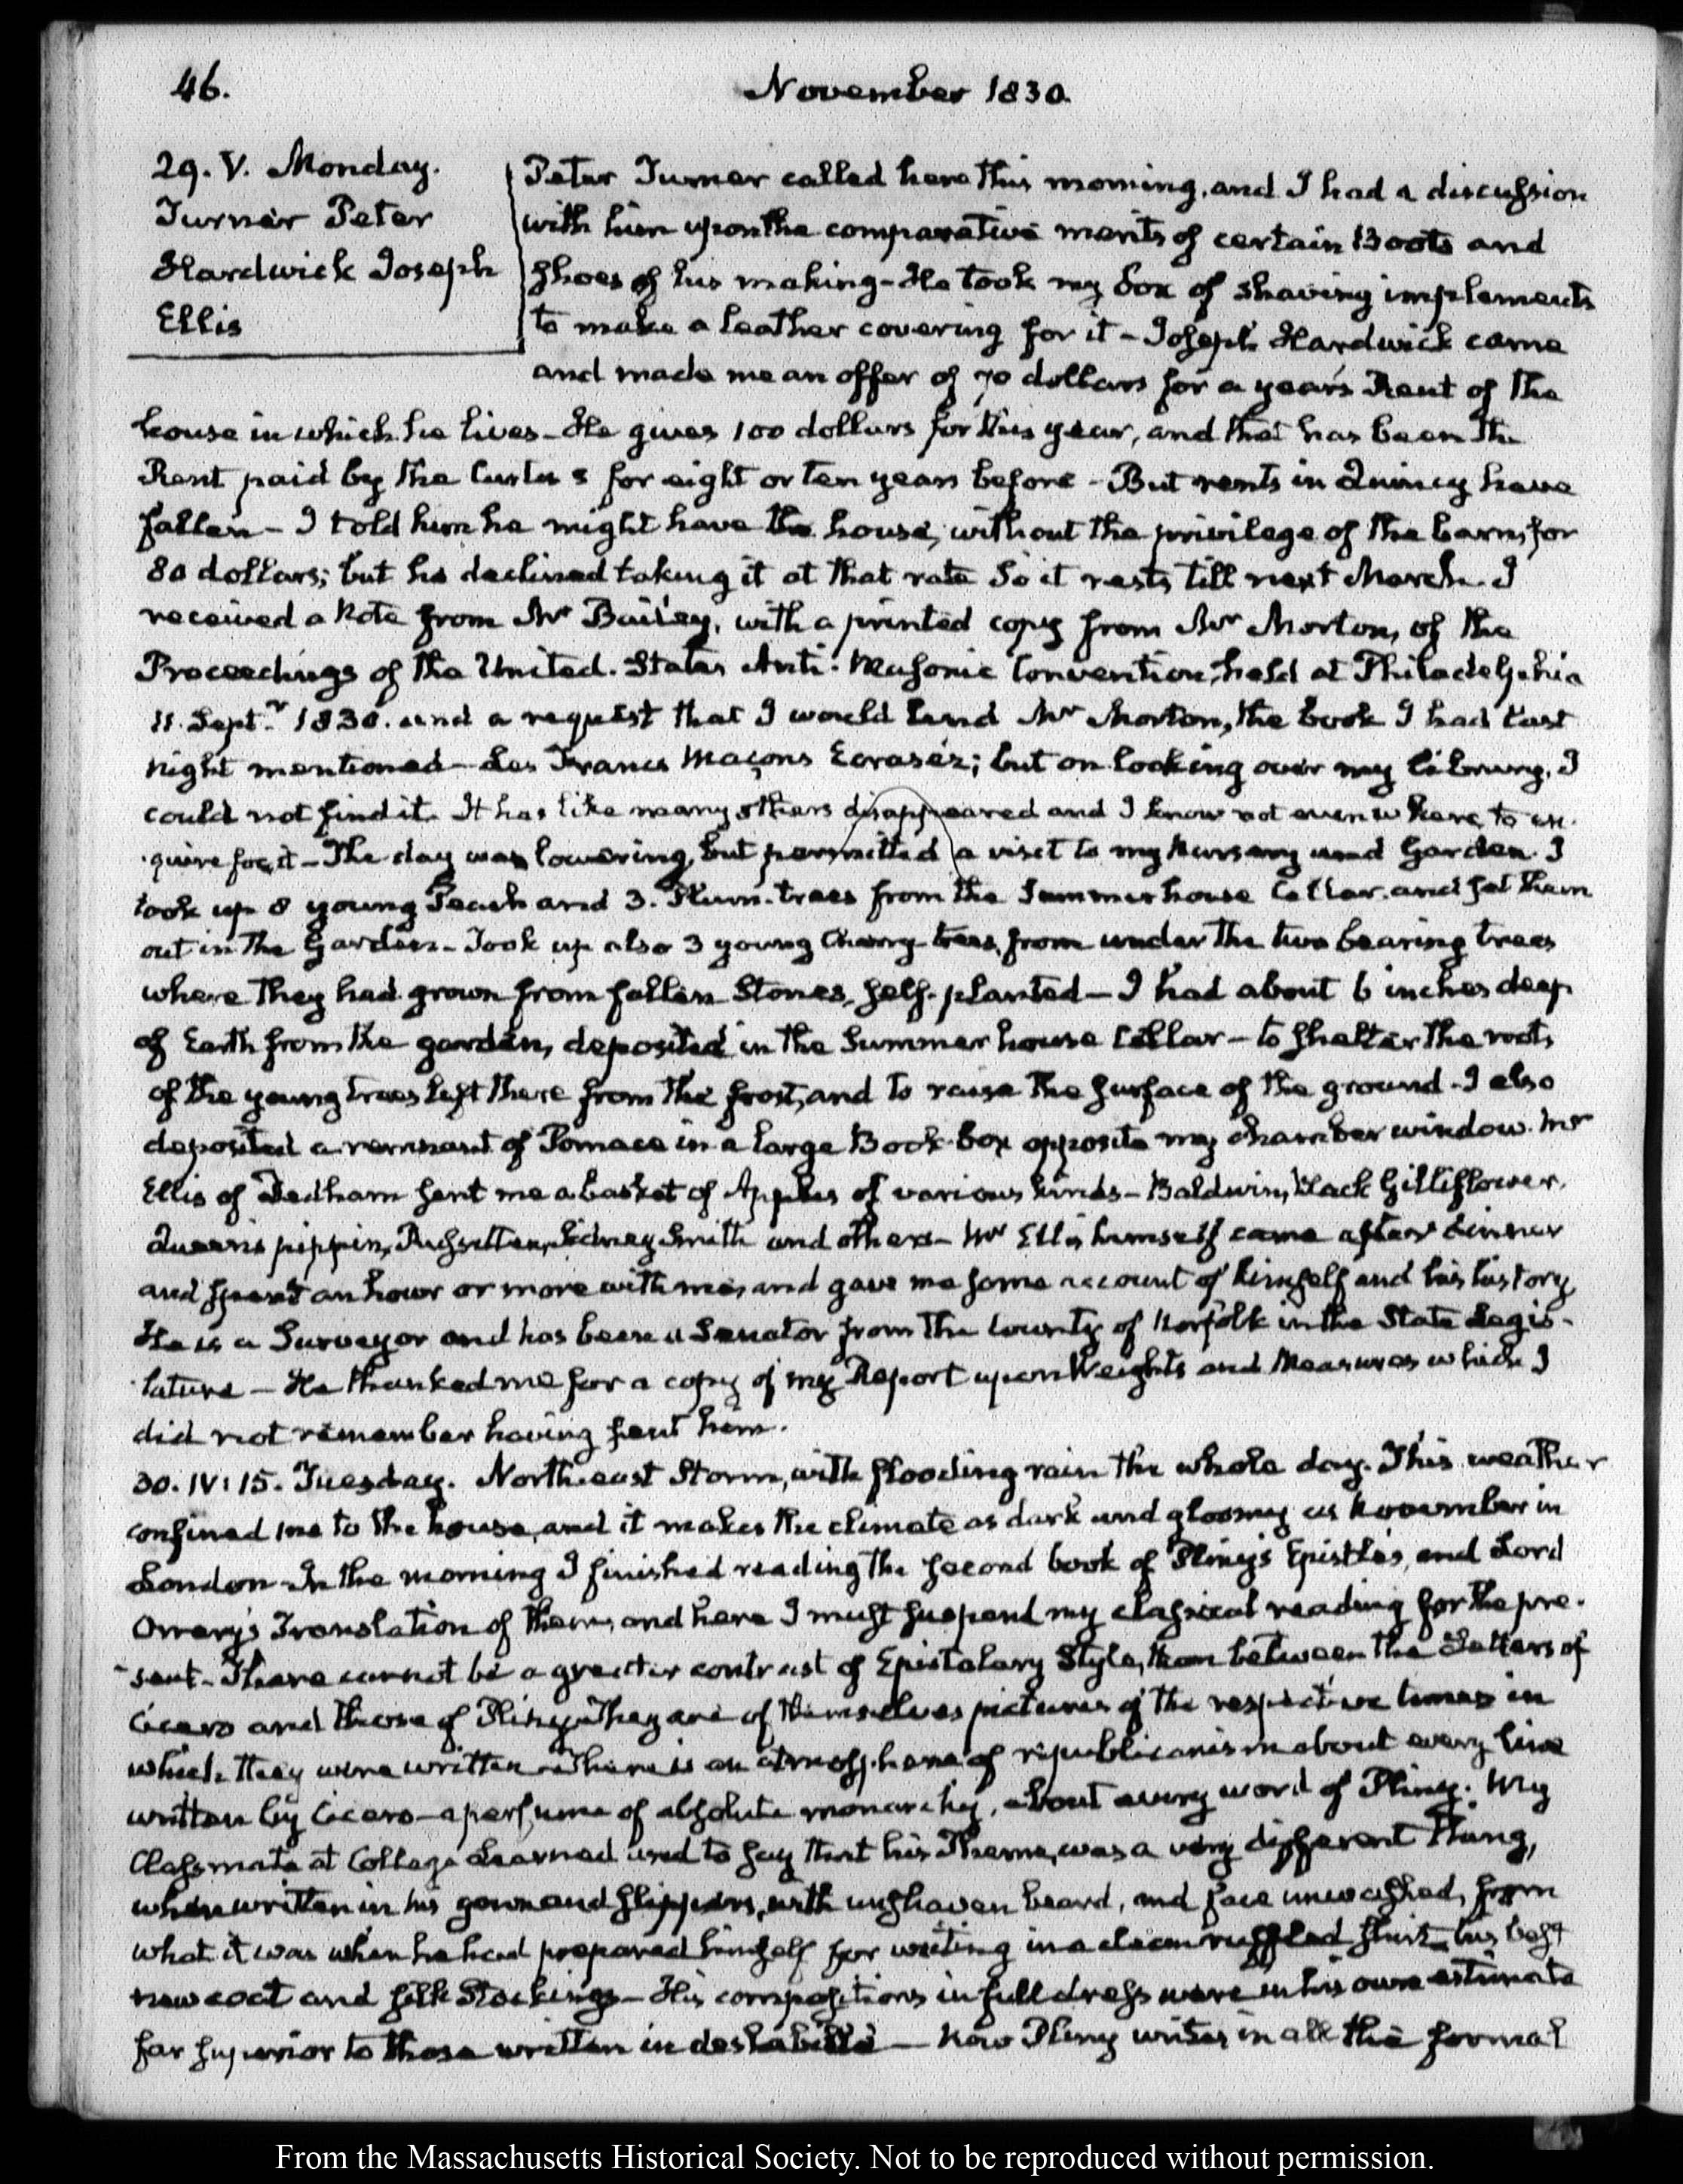 46.
November 1830.
29. V. Monday.
Turner Peter
Hardwick Joseph
Ellis
Peter Turner called here this morning, and I had a discussion
with him upon the comparative merits of certain Boots and
Shoes of his making - He took my box of shaving implements
to make a leather covering for it - Joseph Hardwick came
and made me an offer of 70 dollars for a year's Rent of the
house in which he lives - He gives 100 dollars for this year, and that has been the
Rent paid by the for eight or ten years before - But rents in Quincy have
fallen - I told him he might have the house, without the privilege of the barn, for
80 dollars; but he declined taking it at that rate So it rests till next March. I
received a Note from Mr Bailey, with a printed copy from Mr Morton, of the
Proceedings of the United States Anti-Masonic Convention, held at Philadelphia
11. Septr 1830. and a request that I would lend Mr Morton, the book I had last
night mentioned - Les Francs Maçons Ecrasés; but on looking over my library, I
could not find it. It has like many others disappeared and I know not even where to en-
quire for it - The day was lowering, but permitted a visit to my Nursery and Garden. I
took up 8 young Peach and 3. Plum-trees from the Summer house Cellar, and set them
out in the Garden - Took up also 3 young Cherry trees, from under the two bearing trees
where they had grown from fallen Stones, self-planted - I had about 6 inches deep
of Earth from the garden, deposited in the Summer house Cellar - to shelter the roots
of the young trees left there from the frost, and to raise the surface of the ground - I also
deposited a remnant of Pomace in a large Book-box opposite my chamber window. Mr
Ellis of Dedham sent me a basket of Apples of various kinds - Baldwin, Black Gilliflower,
Queen's pippin, Russetten, Sidney Smith and others - Mr Ellis himself came after dinner
and spent an hour or more with me, and gave me some account of himself and his history
He is a Surveyor and has been a Senator from the County of Norfolk in the State Legis-
lature - He thanked me for a copy of my Report upon Weights and Measures which I
did not remember having sent him.
30. IV: 15. Tuesday. North-east Storm, with flooding rain the whole day. This weather
confined me to the house, and it makes the climate as dark and gloomy as November in
London - In the morning I finished reading the second book of Pliny's Epistles, and Lord
Orrery's Translation of them, and here I must suspend my classical reading for the pre-
sent - There cannot be a greater contrast of Epistolary Style, than between the Letters of
Cicero and those of Pliny. They are of themselves pictures of the respective times in
which they were written - There is an atmosphere of republicanism about every line
written by Cicero - a perfume of absolute monarchy, about every word of Pliny. My
Classmate at College Learned used to say that his Theme, was a very different thing,
when written in his gown and slippers, with unshaven beard, and face unwashed, from
what it was when he had prepared himself for writing in a clean ruffled shirt, his best
new coat and silk Stockings - His compositions in full dress were in his own estimate
far superior to those written in deshabille - Now Pliny writes in all the formal
From the Massachusetts Historical Society. Not to be reproduced without permission.